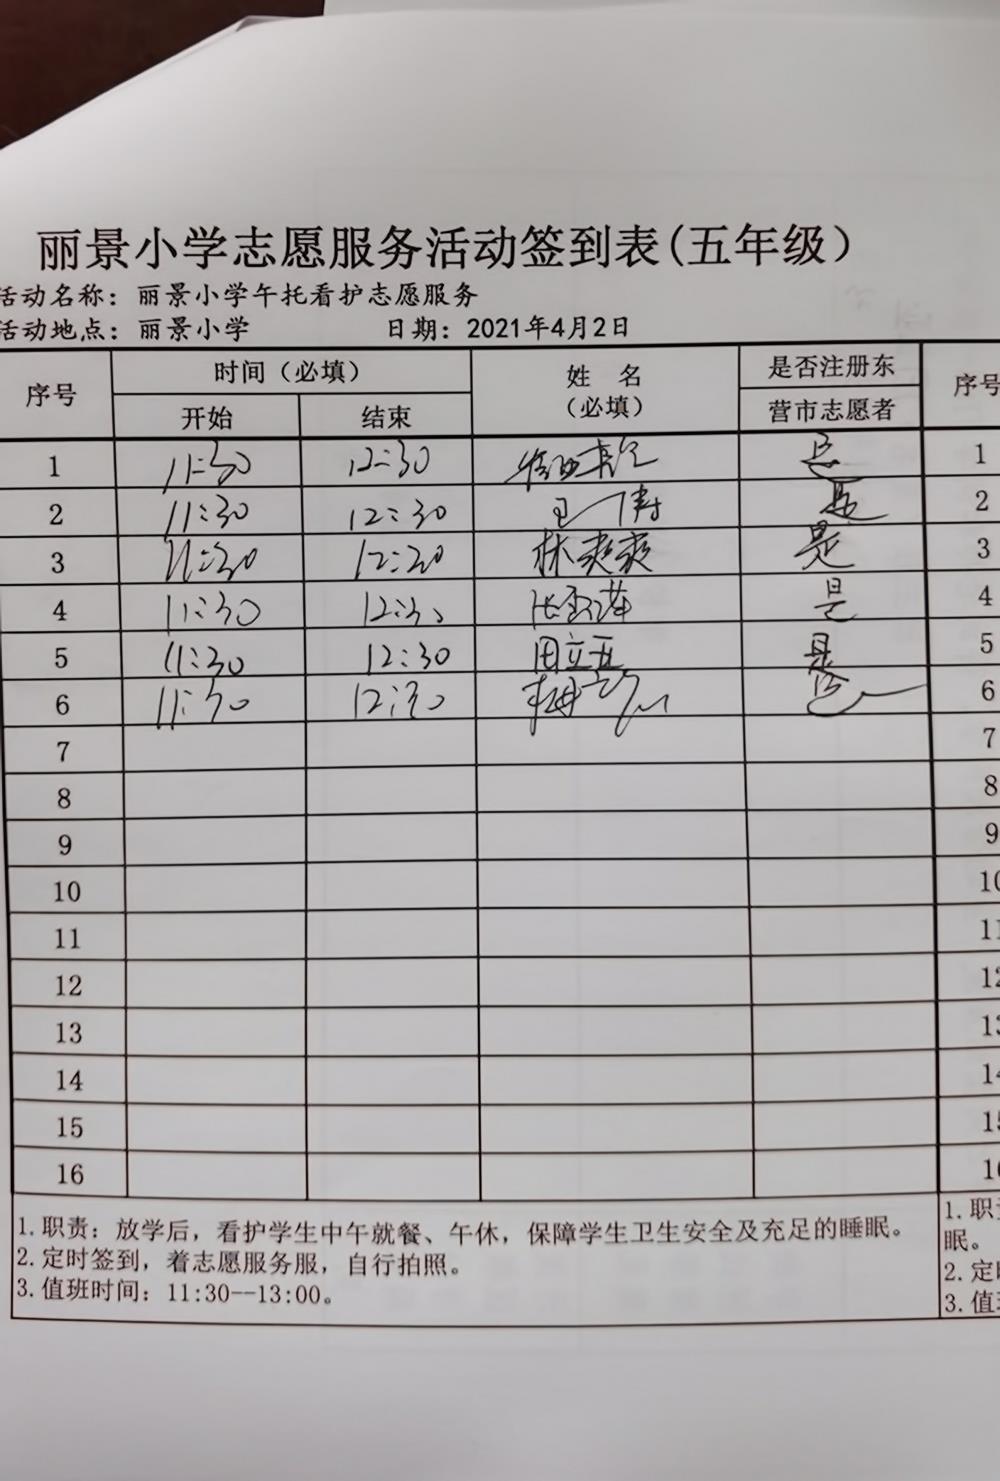 丽景小学志愿服务活动签到表(五年级)
活动名称：丽景小学午托看护志愿服务
活动地点：丽景小学 日期：2021年4月2日
序号 时间（必填） 姓 名 是否注册东 序号
开始 结束 （必填） 营市志愿者
1 11:30 12:30 是 1
2 11:30 12:30 是 2
3 11:30 12:30 林爽爽 是 3
4 11:30 12:30 是 4
5 11:30 12:30 田立五 是 5
6 11:30 12:30 是 6
7 7
8 8
9 9
10 10
11 11
12 12
13 13
14 14
15 15
16 16
1.职责：放学后，看护学生中午就餐、午休，保障学生卫生安全及充足的睡眠。
2.定时签到，着志愿服务服，自行拍照。
3.值班时间：11:30--13:00。
1.职责
眠。
2.定时
3.值班